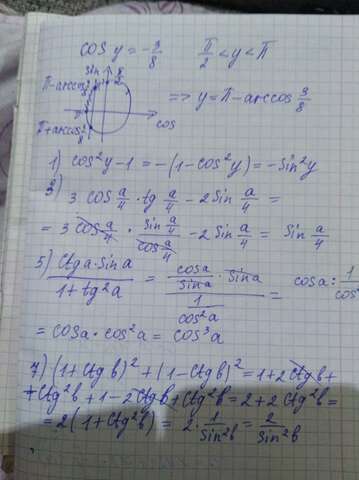 cos y = -3/8    π/2 < y < π
sin
π-arccos 3/8
=> y = π - arccos 3/8
cos
π+arccos 3/8
1) cos²y - 1 = -(1 - cos²y) = -sin²y
3)
3 cos a/4 · tg a/4 - 2 sin a/4 =
= 3 cos a/4 · (sin a/4)/(cos a/4) - 2 sin a/4 = sin a/4
5) (ctg a · sin a)/(1 + tg²a) = (cos a/sin a · sin a)/(1/cos²a) = cos a : 1/cos
= cos a · cos²a = cos³a
7) (1 + ctg b)² + (1 - ctg b)² = 1 + 2 ctg b +
+ ctg²b + 1 - 2 ctg b + ctg²b = 2 + 2 ctg²b =
= 2(1 + ctg²b) = 2 · 1/sin²b = 2/sin²b